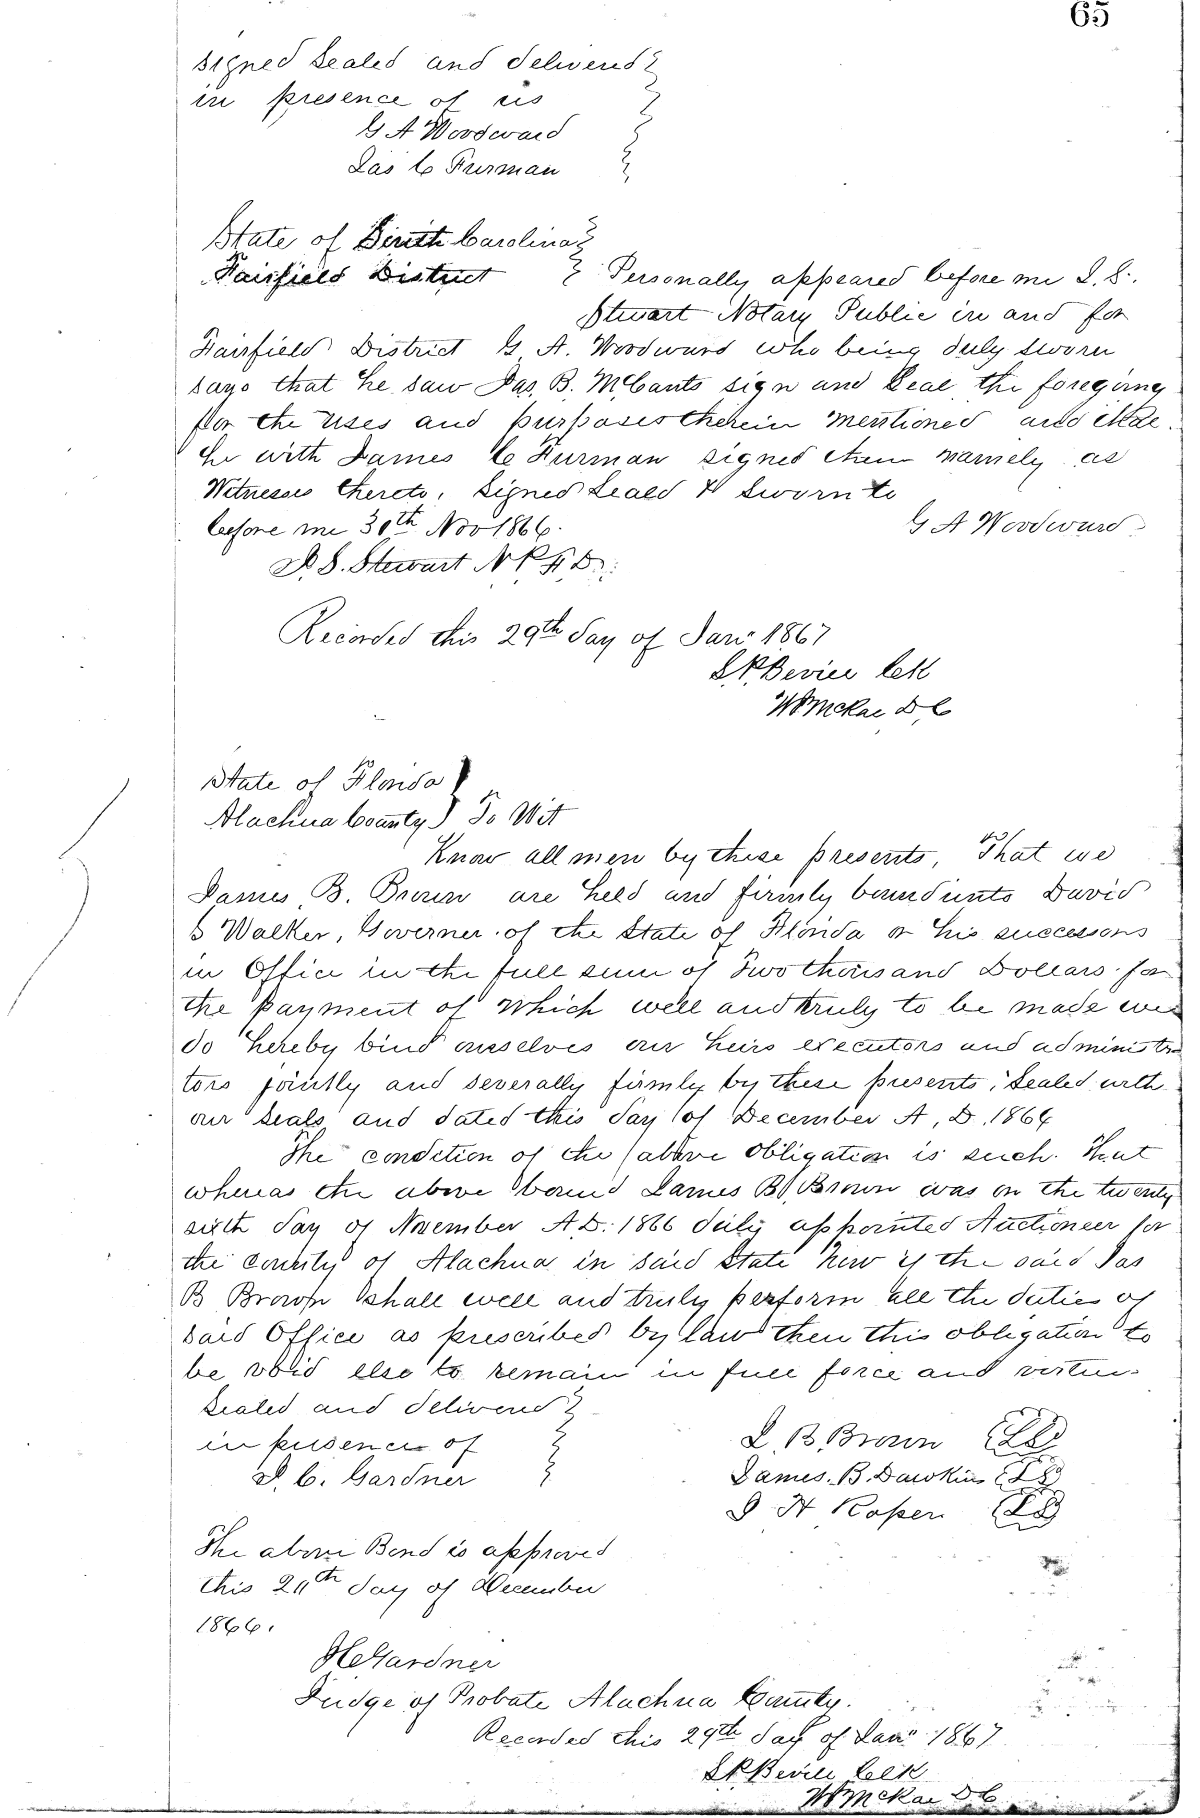 65
signed sealed and delivered
in presence of us
G A Woodward
Jas C Furman
State of South Carolina
Fairfield District Personally appeared before me
Stewart Notary Public in and for
Fairfield District G A. Woodward who being duly sworn
says that he saw Jas. B. McCants sign and Seal the foregoing
for the uses and purposes therein mentioned and that
he with James C Furman signed their namely as
Witnesses thereto. Signed Seald & Sworn to
before me 30th Nov 1866. G A Woodward
S. Stewart N P F D.
Recorded this 29th day of Jan 1867
Clk
D C
State of Florida
Alachua County To Wit
Know all men by these presents, That we
James B. Brown are held and firmly bound unto David
S Walker, Governer of the State of Florida or his successors
in Office in the full sum of Two thousand Dollars for
the payment of which well and truly to be made we
do hereby bind ourselves our heirs executors and administra
tors jointly and severally firmly by these presents, Sealed with
our Seals and dated this day of December A, D, 1866
The condition of the above obligation is such. That
whereas the above bound James B. Brown was on the twenty
sixth day of November A D. 1866 duly appointed Auctioneer for
the County of Alachua in said State Now if the said Jas
B Brown shall well and truly perform all the duties of
said Office as prescribed by law then this obligation to
be void else to remain in full force and virtue.
Sealed and delivered
in presence of J. B. Brown LS
C. Gardner James. B. Dawkins LS
H Roper LS
The above Bond is approved
this day of December
1866.
Gardner
Judge of Probate Alachua County.
Recorded this 29th day of Jan 1867
Clk
D C